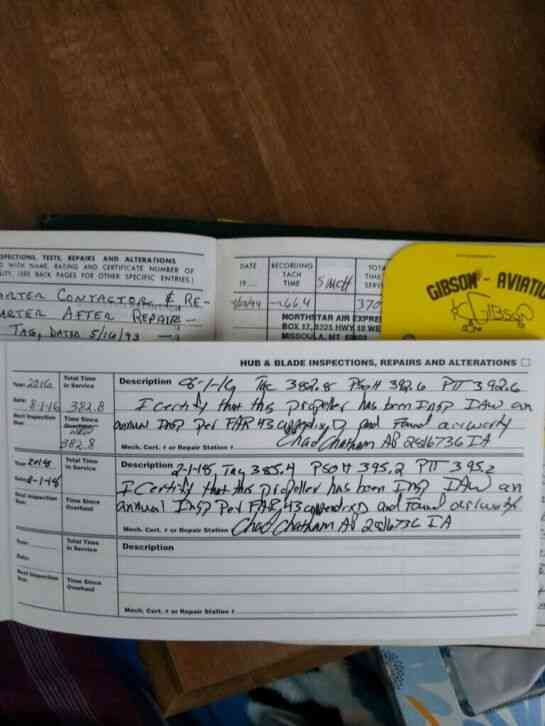 SPECTIONS, TESTS, REPAIRS AND ALTERATIONS
D WITH NAME, RATING AND CERTIFICATE NUMBER OF
LITY. (SEE BACK PAGES FOR OTHER SPECIFIC ENTRIES)
ARTER CONTACTOR & RE-
ARTER AFTER REPAIR
TAG, DATED 5/16/93
DATE
19
RECORDING
TACH
TIME
SMOH
TOTA
TIME
SERV
66.4
370
NORTHSTAR AIR EXPRE
MISSOULA, MT
GIBSON - AVIATIO
HUB & BLADE INSPECTIONS, REPAIRS AND ALTERATIONS
Year: 2016
Total Time
in Service
Description 8-1-16 Tac 382.8 PSOH 392.6 PTT 392.6
Date: 8-1-16
382.8
I certify that this propeller has been Insp IAW an
Next Inspection
Due:
Time Since
Overhaul
382.8
annual Insp Per FAR 43 appendix D and Found airworthy
Mech. Cert. # or Repair Station #
Chad Chatham AP 2816736 IA
Year: 2018
Total Time
in Service
Description 2-1-18 Tac 385.4 PSOH 395.2 PTT 395.2
Date: 2-1-18
I Certify that this Propeller has been Insp IAW an
Next Inspection
Due:
Time Since
Overhaul
annual Insp Per FAR 43 appendix D and Found airworthy
Mech. Cert. # or Repair Station #
Chad Chatham AP 2816736 IA
Year:
Total Time
in Service
Description
Date:
Next Inspection
Due:
Time Since
Overhaul
Mech. Cert. # or Repair Station #